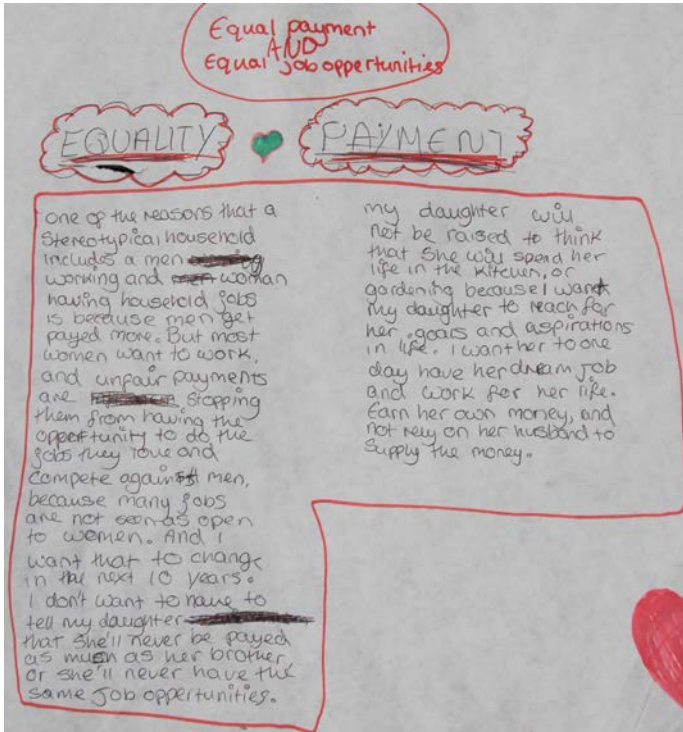 Equal payment
AND
Equal job oppertunities
EQUALITY PAYMENT
one of the reasons that a
stereotypical household
includes a men
working and woman
having household jobs
is because men get
payed more. But most
women want to work,
and unfair payments
are stopping
them from having the
opportunity to do the
jobs they love and
compete against men,
because many jobs
are not seen as open
to women. And I
want that to change
in the next 10 years.
I don't want to have to
tell my daughter
that she'll never be payed
as much as her brother
or she'll never have the
same job oppertunities.
my daughter will
not be raised to think
that she will spend her
life in the kitchen, or
gardening because I want
my daughter to reach for
her goals and aspirations
in life. I want her to one
day have her dream job
and work for her life.
Earn her own money, and
not rely on her husband to
supply the money.